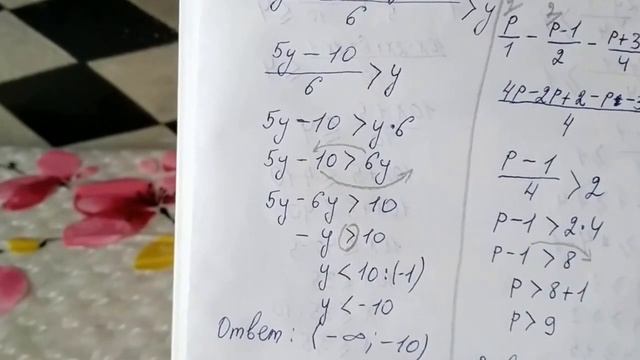 6 > y
(5y - 10)/6 > y
5y - 10 > y·6
5y - 10 > 6y
5y - 6y > 10
- y > 10
y < 10:(-1)
y < -10
Ответ: (-∞; -10)
p/1 - (p-1)/2 - (p+3)/4
(4p-2p+2-p-3)/4
(p - 1)/4 > 2
p-1 > 2·4
p-1 > 8
p > 8+1
p > 9